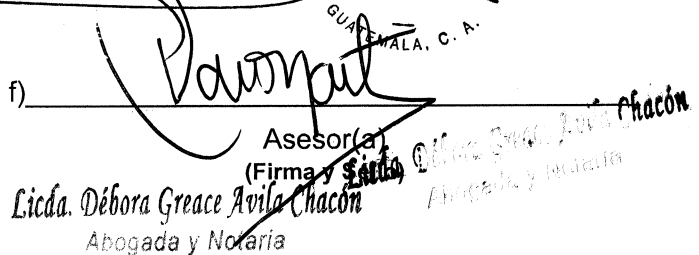 GUATEMALA, C. A.
f)
Asesor(a)
(Firma y Sello)
Licda. Débora Greace Avila Chacón
Abogada y Notaria
Licda. Débora Greace Avila Chacón
Abogada y Notaria